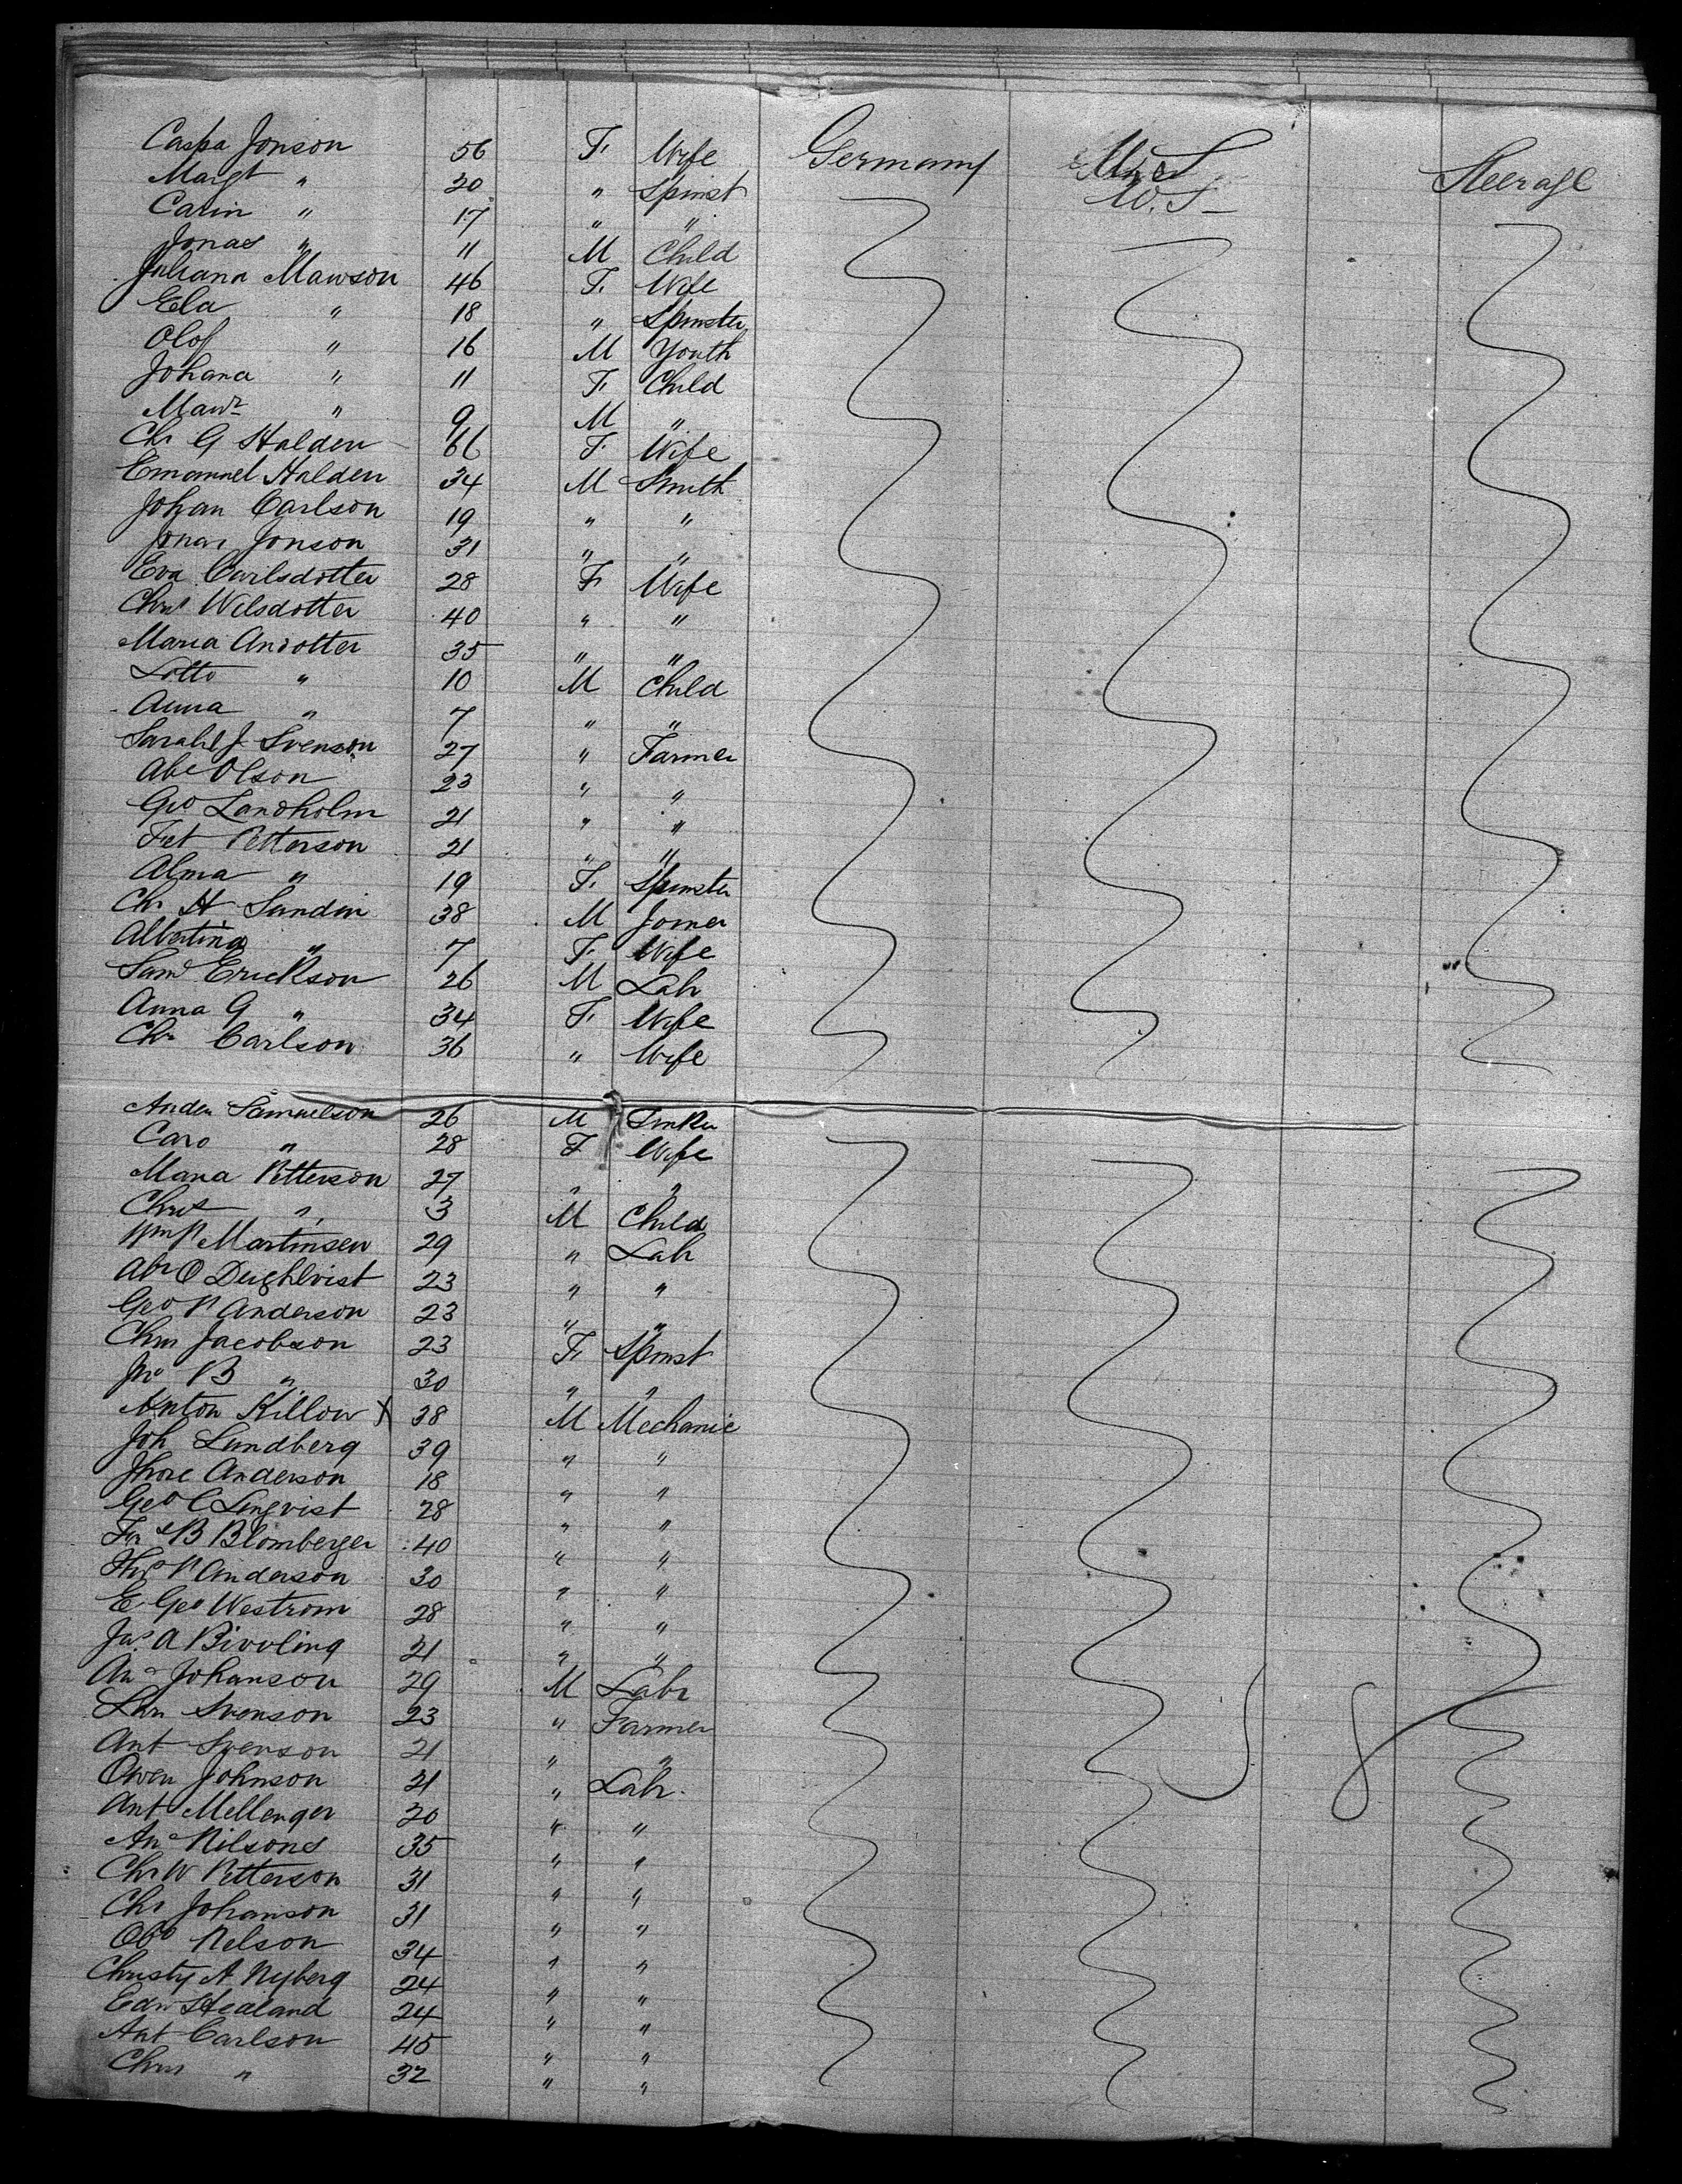 Caspa Jonson 56 F. Wife Germany U.S. Steerage
Margt " 20 " Spinst U.S.
Carin " 17 " "
Jonas " 11 M Child
Juliana Mawson 46 F. Wife
Ela " 18 " Spinster
Olof " 16 M Youth
Johana " 11 F. Child
" 9 M "
Chr G Halden 66 F. Wife
Emanuel Halden 34 M Smith
Johan Carlson 19 " "
Jonas Jonson 31 " "
Eva Carlsdotter 28 F. Wife
Welsdotter 40 " "
Maria Andotter 35 " "
Lotto " 10 M Child
Anna " 7 " "
J. Svenson 27 " Farmer
Abe Olson 23 " "
Geo Landholm 21 " "
Petterson 21 " "
Alma " 19 F. Spinster
Chr H Sundin 38 M Joiner
Albertina " 7 F. Wife
Saml Erickson 26 M Lab
Anna G " 34 F. Wife
Chr Carlson 36 " Wife
Anders Samuelson 26 M
Caro " 28 F Wife
Maria Petterson 27 " "
Christ " 3 M Child
Martinsen 29 " Lab
Abr O 23 " "
Geo P Anderson 23 " "
Chrs Jacobson 23 F. Spinst
Jno B " 30 " "
Anton Killow X 38 M Mechanic
Joh Lundberg 39 " "
Anderson 18 " "
Geo C Lingvist 28 " "
B Blomberger 40 " "
P Anderson 30 " "
E Geo Westrom 28 " "
Jas. A Bivvling 21 " "
Johanson 29 M Labr
Svenson 23 " Farmer
Ant Svenson 21 " "
Owen Johnson 21 " Lab.
Ant Mellenger 20 " "
Nilsons 35 " "
Chr W Petterson 31 " "
Chr Johanson 31 " "
Nelson 34 " "
Christy A Nyberg 24 " "
Edw Healand 24 " "
Ant Carlson 45 " "
Chrs " 32 " "